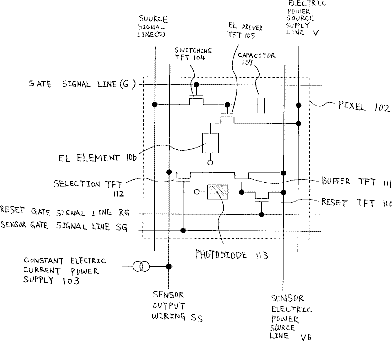 SOURCE
SIGNAL
LINE(S)
SWITCHING
TFT 104
EL DRIVER
TFT 105
CAPACITOR
ELECTRIC
POWER
SOURCE
SUPPLY
LINE V
GATE SIGNAL LINE (G)
PIXEL 102
EL ELEMENT 106
SELECTION TFT
112
BUFFER TFT 111
RESET GATE SIGNAL LINE RG
RESET TFT 110
SENSOR GATE SIGNAL LINE SG
PHOTODIODE 113
CONSTANT ELECTRIC
CURRENT POWER
SUPPLY 103
SENSOR
OUTPUT
WIRING SS
SENSOR
ELECTRIC
POWER
SOURCE
LINE VB